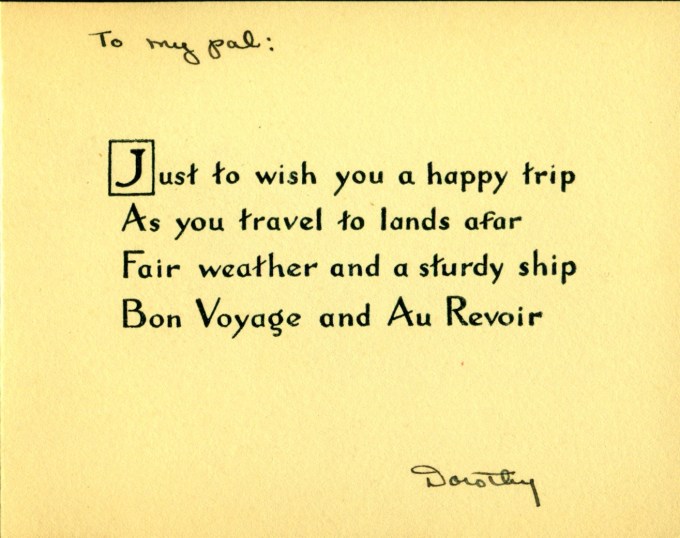 To my pal:
Just to wish you a happy trip
As you travel to lands afar
Fair weather and a sturdy ship
Bon Voyage and Au Revoir
Dorothy